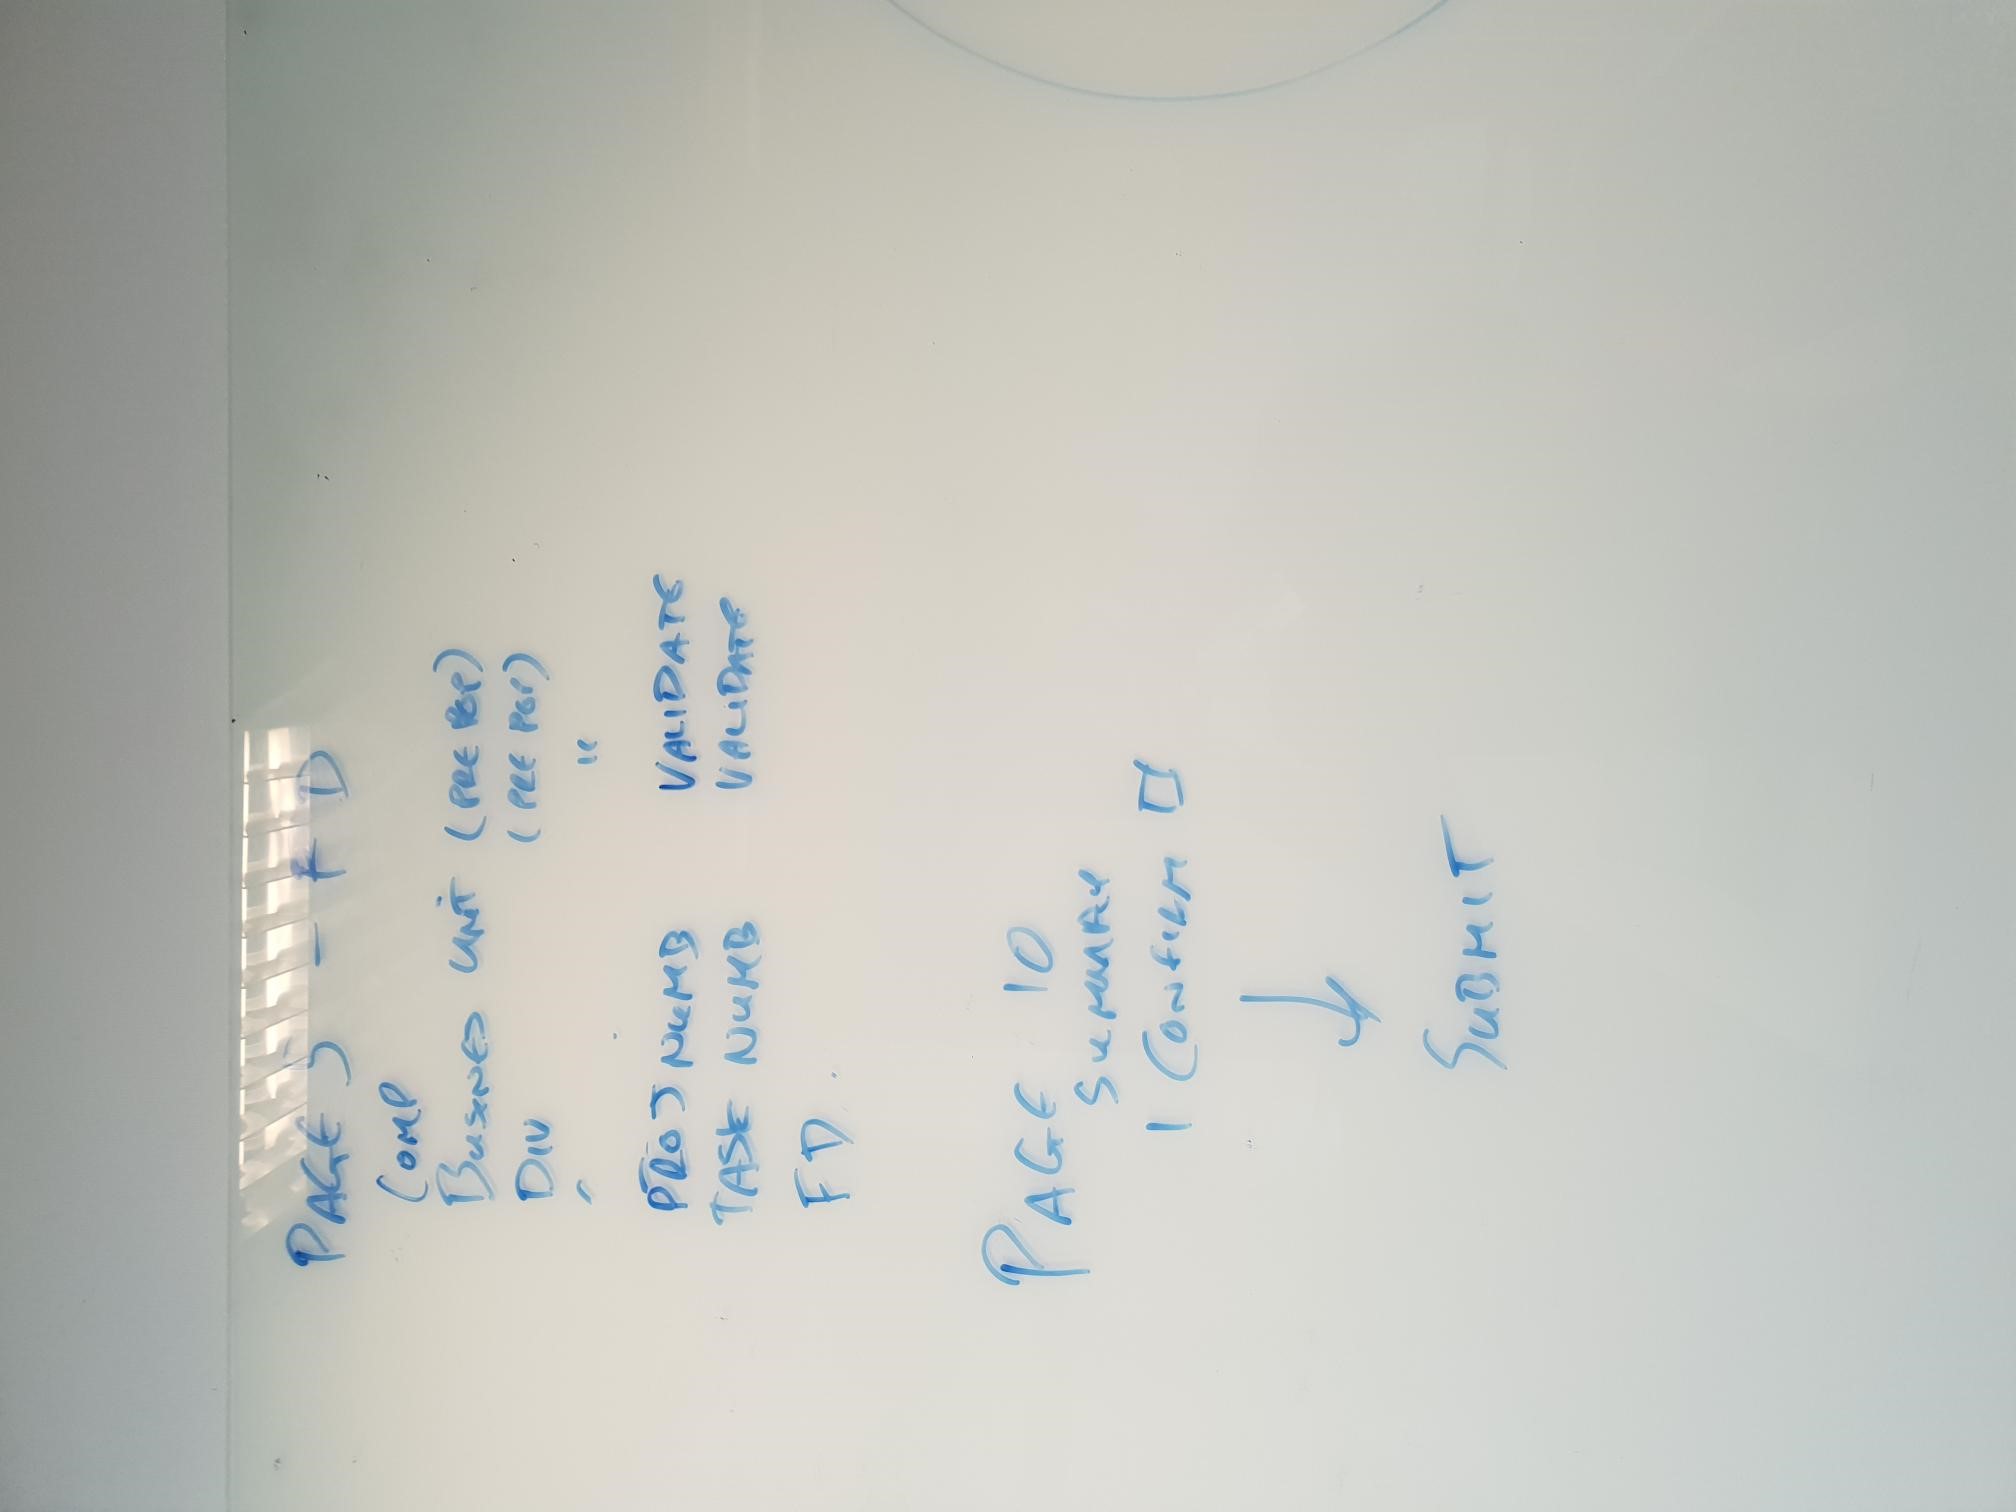 PAGE 5 - FD
COMP
BUSINES UNIT (PRE POP)
DIV (PRE POP)
" "
PROJ NUMB VALIDATE
TASK NUMB VALIDATE
FD.
PAGE 10
SUMMARY
I CONFIRM
SUBMIT